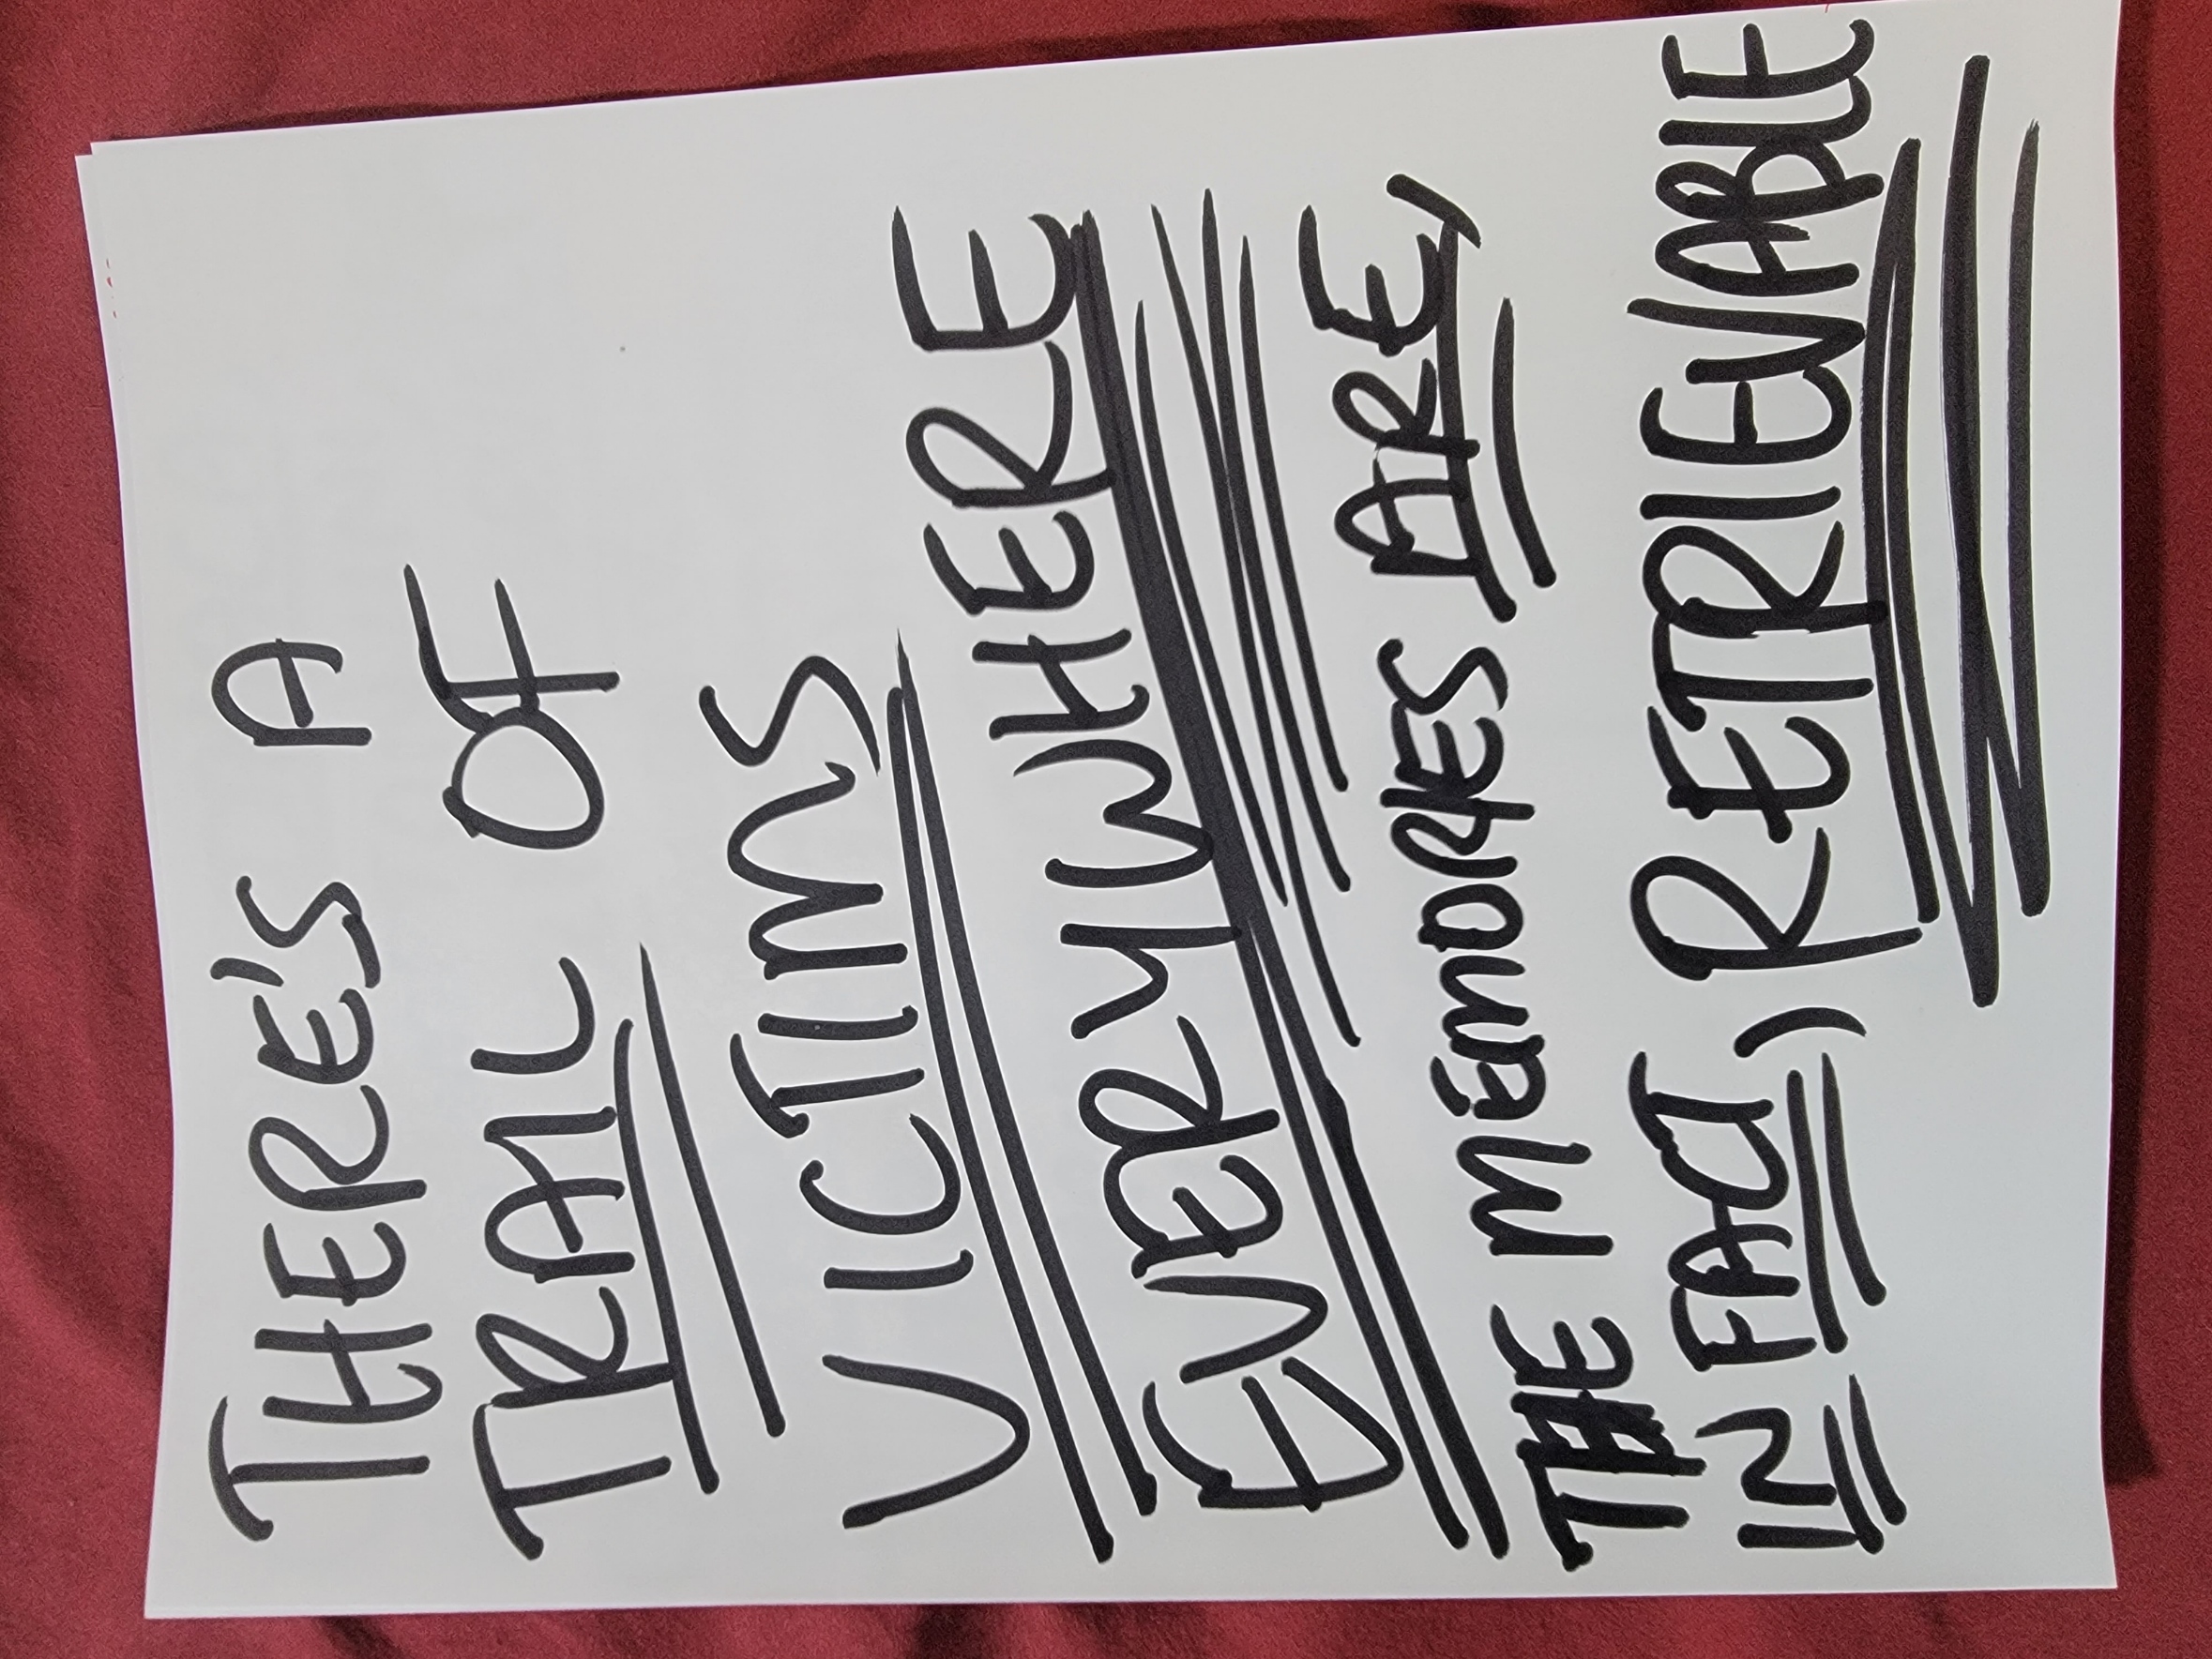 THERE'S A
TRAIL OF
VICTIMS
EVERYWHERE
THE MEMORIES ARE,
IN FACT, RETRIEVABLE